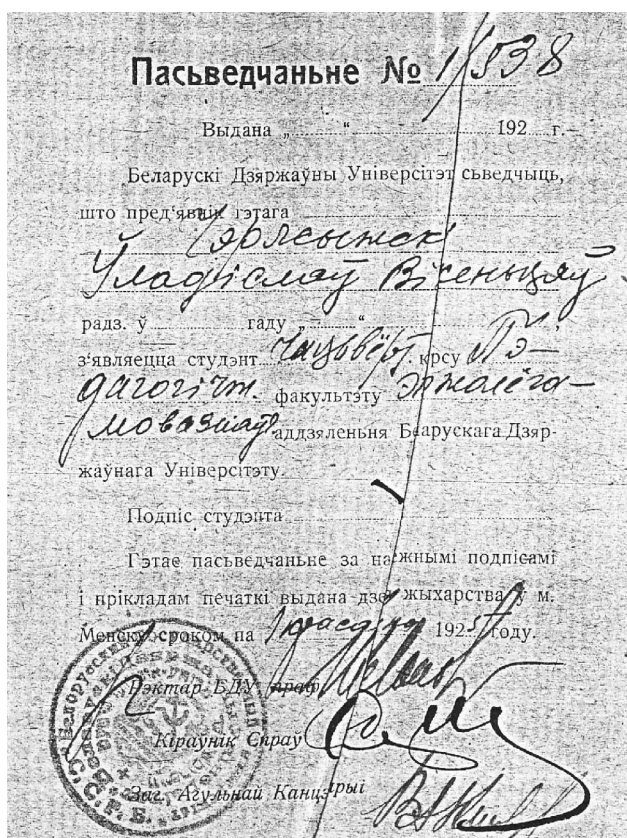 Пасьведчаньне № 1/538
Выдана „ “ 192 г.
Беларускі Дзяржаўны Універсітэт сьведчыць,
што прэд‘яўнік гэтага
Уладіслаў Вікеньцяў
радз. ў гаду „ “
з‘являецца студэнт чацьвёрт. крсу Пэ-
дагогічн. факультэту Этнолёга-
мовазнаў аддзяленьня Беарускага Дзяр-
жаўнага Універсітэту.
Подпіс студэнта
Гэтае пасьведчаньне за нажнымі подпісамі
і прікладам печаткі выдана дзо жыхарства ў м.
Менску сроком па 1 1925 году.
Рэктар БДУ праф.
Кіраўнік Спраў
Заг. Агульнай Канцэрыі
С.С.Р.Б.